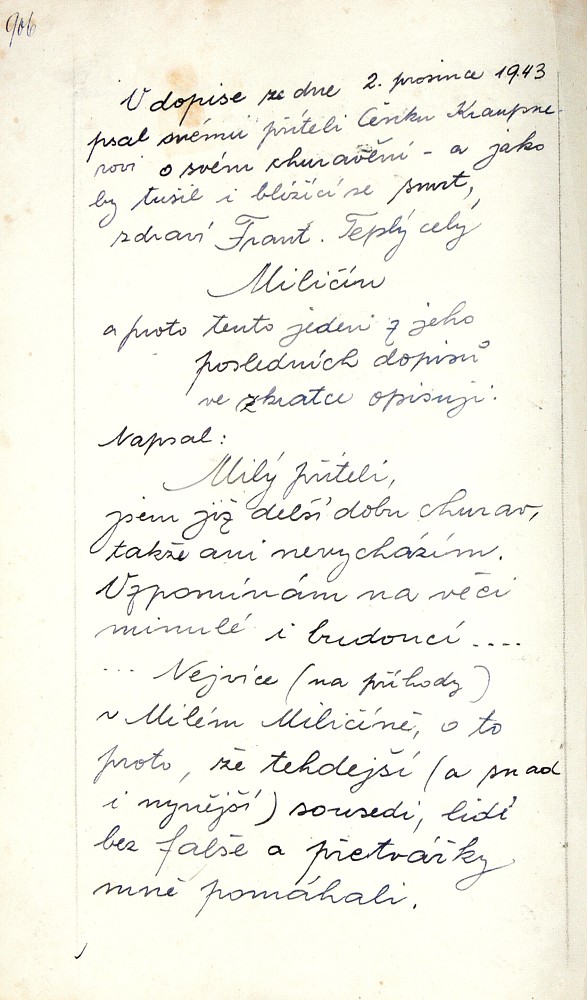 906
V dopise ze dne 2. prosince 1943
psal svému příteli Čeňku Kraupne-
rovi o svém churavění - a jako
by tušil i blížící se smrt,
zdraví Frant. Teplý celý
Miličín
a proto tento jeden z jeho
posledních dopisů
ve zkratce opisuji:
Napsal:
Milý příteli,
jsem již delší dobu churav,
takže ani nevycházím.
Vzpomínám na věci
minulé i budoucí ....
... Nejvíce (na příhody)
v Milém Miličíně, o to
proto, že tehdejší (a snad
i nynější) sousedi, lidé
bez falše a přetvářky
mně pomáhali.